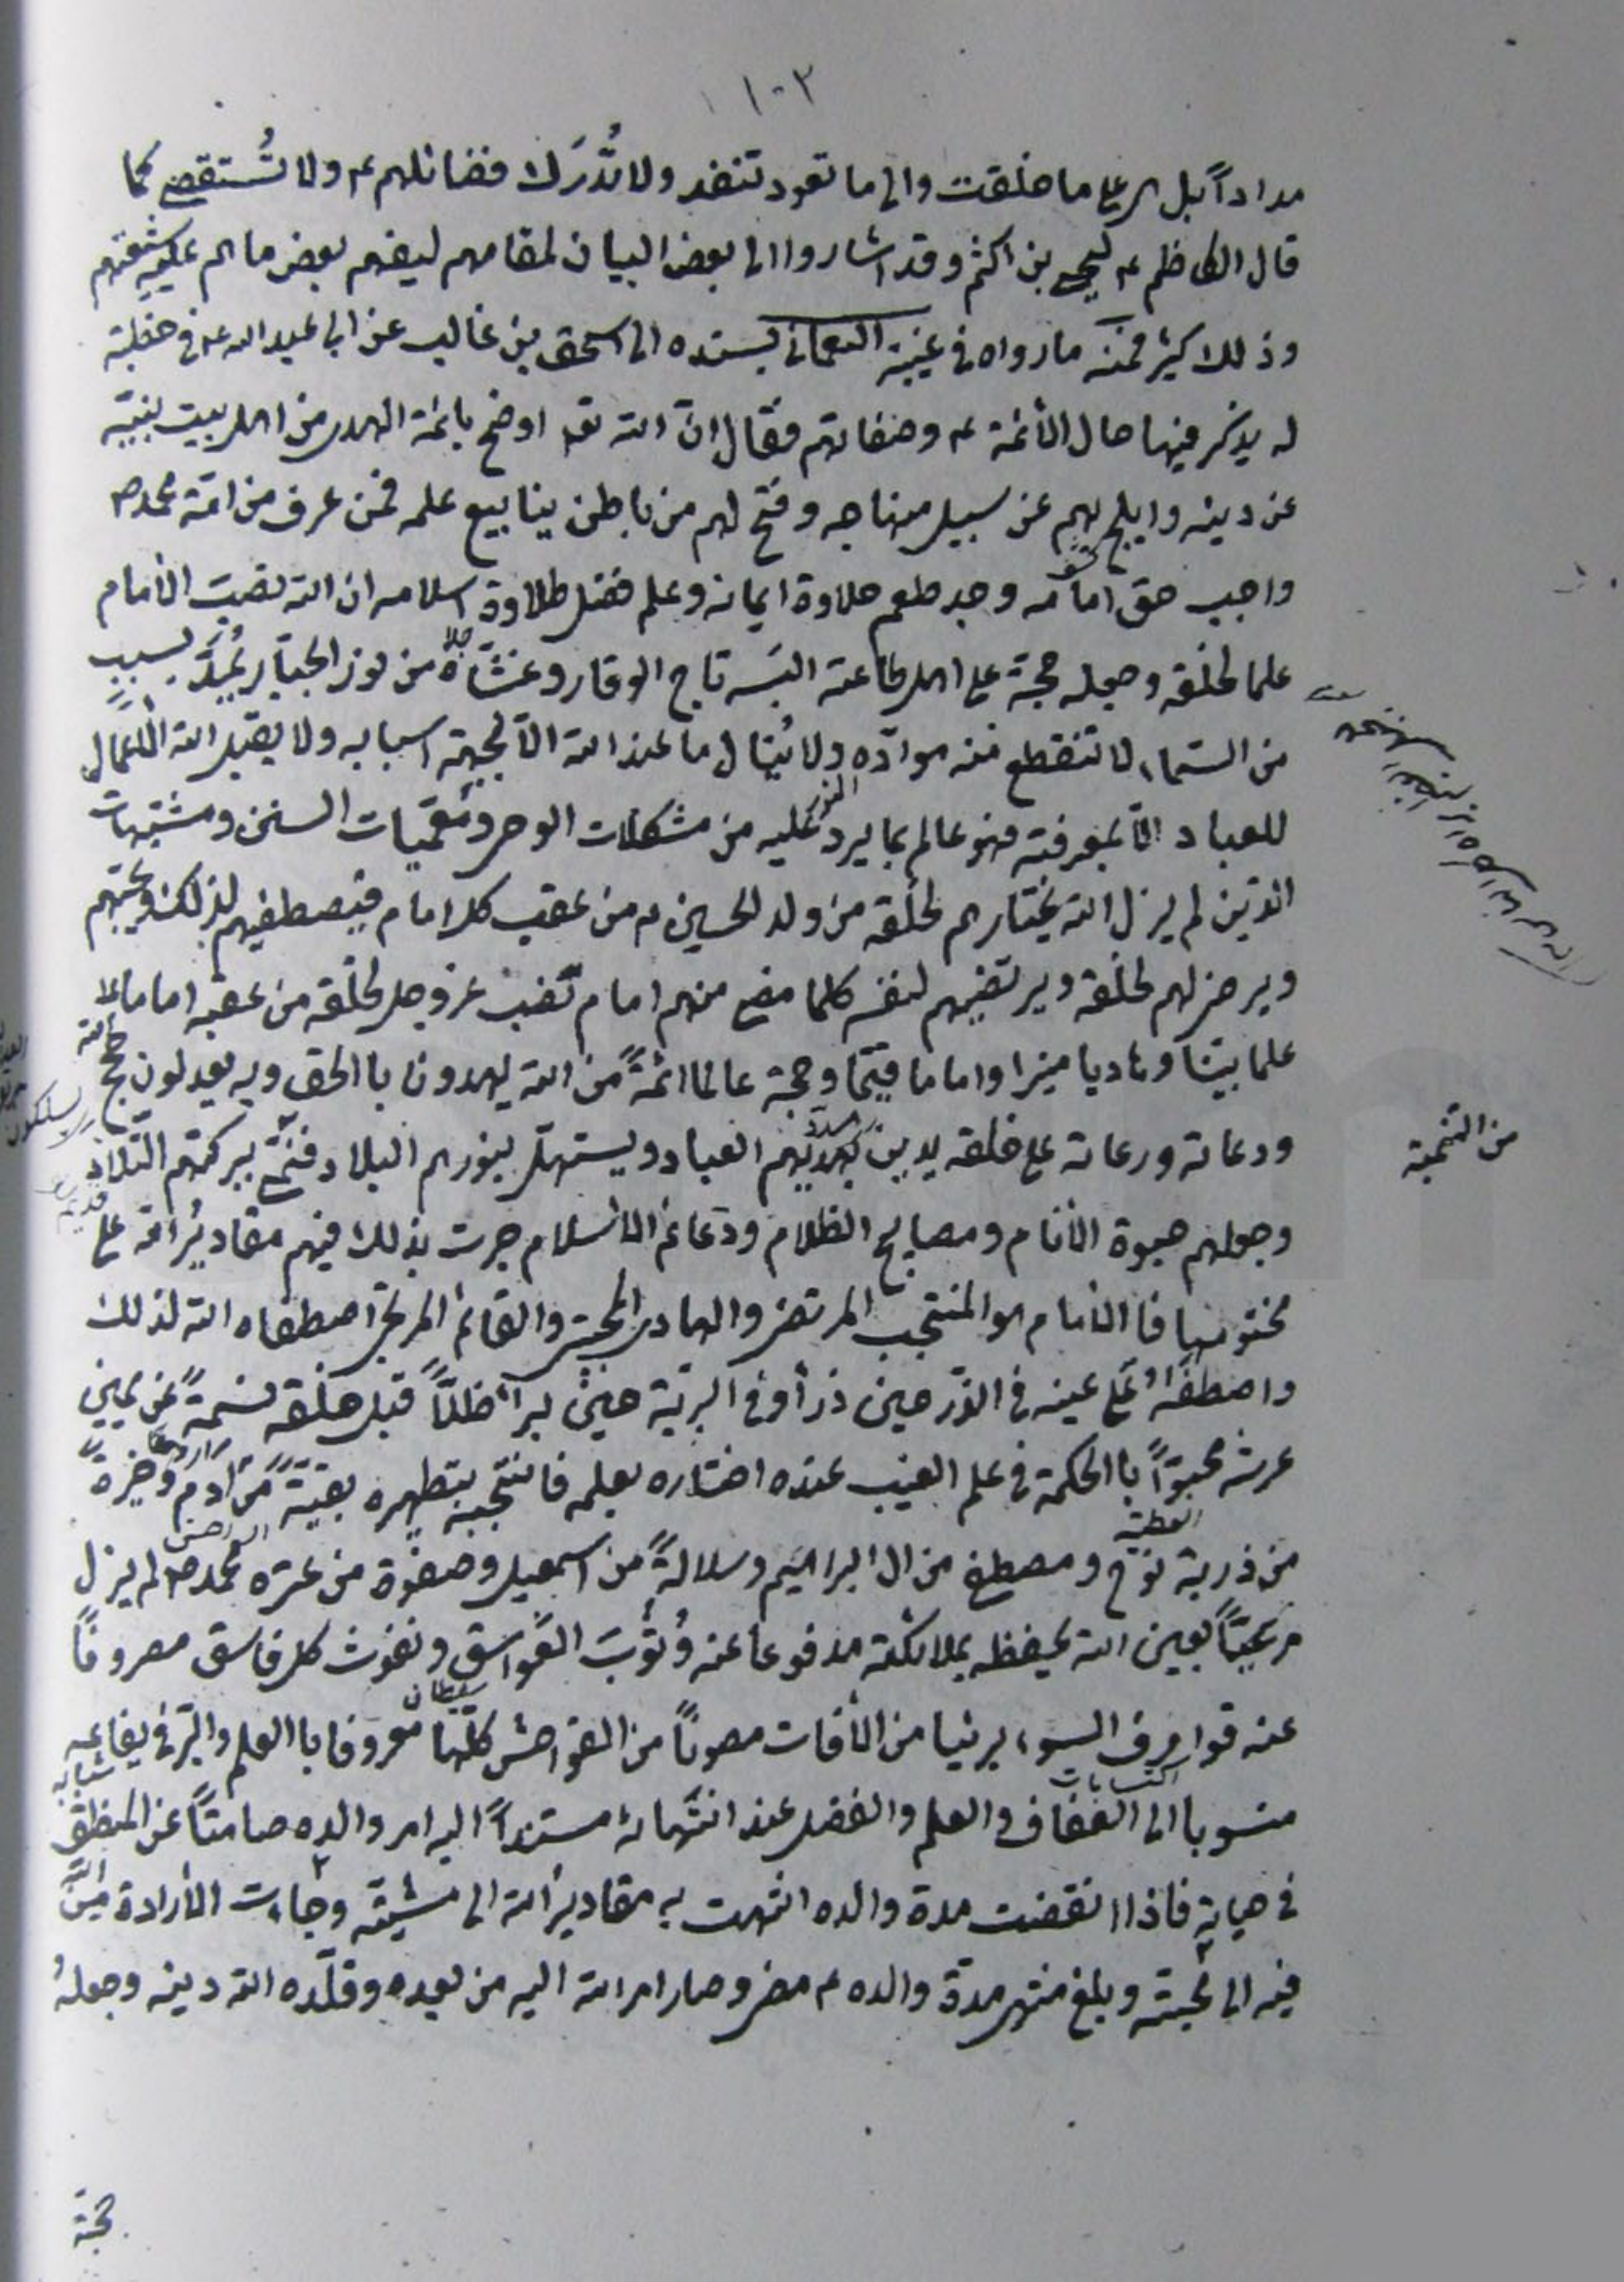 ١٠٢
مداداً بل هي على ما خلقت والى ما تعود تنفد ولا تُدرَك فضائلهم ع ولا تُستقصى كما
قال الكاظم ع ليحيى بن اكثم وقد اشاروا الى بعض البيان لمقامهم ليفهم بعض ما هم عليه شيعتهم
وذلك كثير فمنه ما رواه في غيبة النعماني بسنده الى اسحق بن غالب عن ابي عبد الله ع في خطبة
له يذكر فيها حال الأئمة ع وصفاتهم فقال انّ الله تعه اوضح بائمة الهدى من اهل بيت نبيّه
عن دينه وابلج بهم عن سبيل منهاجه وفتح لهم من باطن ينابيع علمه فمن عرف من امّة محمد ص
واجب حق امامه وجد طعم حلاوة ايمانه وعلم فضل طلاوة اسلامه ان الله نصب الأمام
علما لخلقه وجعله حجة على اهل طاعته البسَه تاج الوقار وغشّاه من نور الجبّار يُمدّ بسبب
من السّماء لا تنقطع منه موادّه ولا يُنال ما عند الله الّا بجهة اسبابه ولا يقبل الله الأعمال
للعباد الّا بمعرفته فهو عالم بما يرد عليه من مشكلات الوحى ومُعَمّيات السنن ومشتبهات
الذين لم يزل الله يختارهم لخلقه من ولد الحسين ع من عقب كل امام فيصطفيهم لذلك ويجتبيهم
ويرضى لهم لخلقه ويرتضيهم لنفسه كلما مضى منهم امام نصب عز وجل لخلقه من عقبه اماما
علما بيّنا وهاديا منيرا واماما قيّما وحجة عالما ائمةً من الله يهدون بالحق وبه يعدلون حجج الله
ودعاته ورعاته على خلقه يدين بهديهم العباد ويستهلّ بنورهم البلاد فتنمى ببركتهم التلاد
وجعلهم حيوة الأنام ومصابيح الظلام ودعائم الأسلام جرت بذلك فيهم مقادير الله على
محتومها فالأمام هو المنتجب المرتضى والهادى المجتبى والقائم المرتجى اصطفاه الله لذلك
واصطفاه على عينه في الذّر حين ذرأه وفي البريّة حين برأه ظلّاً قبل خلقه نسمةً عن يمين
عرشه محبوّاً بالحكمة في علم الغيب عنده اختاره بعلمه فانتجبه بتطهيره بقيّة من آدم وخيرة
من ذرية نوح ومصطفى من ال ابراهيم وسلالةً من اسمعيل وصفوة من عترة محمد ص لم يزل
مرعيّاً بعين الله يحفظه بملائكته مدفوعا عنه وُتُوب الغواسق ونفوث كل فاسق مصروفًا
عنه قوارف السوء بريئا من الأفات مصوناً من الفواحش كلّها معروفا بالعلم والبرّ في يفاعه
منسوبا الى العفاف والعلم والفضل عند انتهائه مسنداً اليه امر والده صامتاً عن المنطق
في حياته فاذا انقضت مدة والده انتهت به مقادير الله الى مشيّته وجاءت الأرادة من الله
فيه الى محبته وبلغ منتهى مدّة والده ع مضى وصار امر الله اليه من بعده وقلّده الله دينه وجعلهُ
من التنمية
حجة